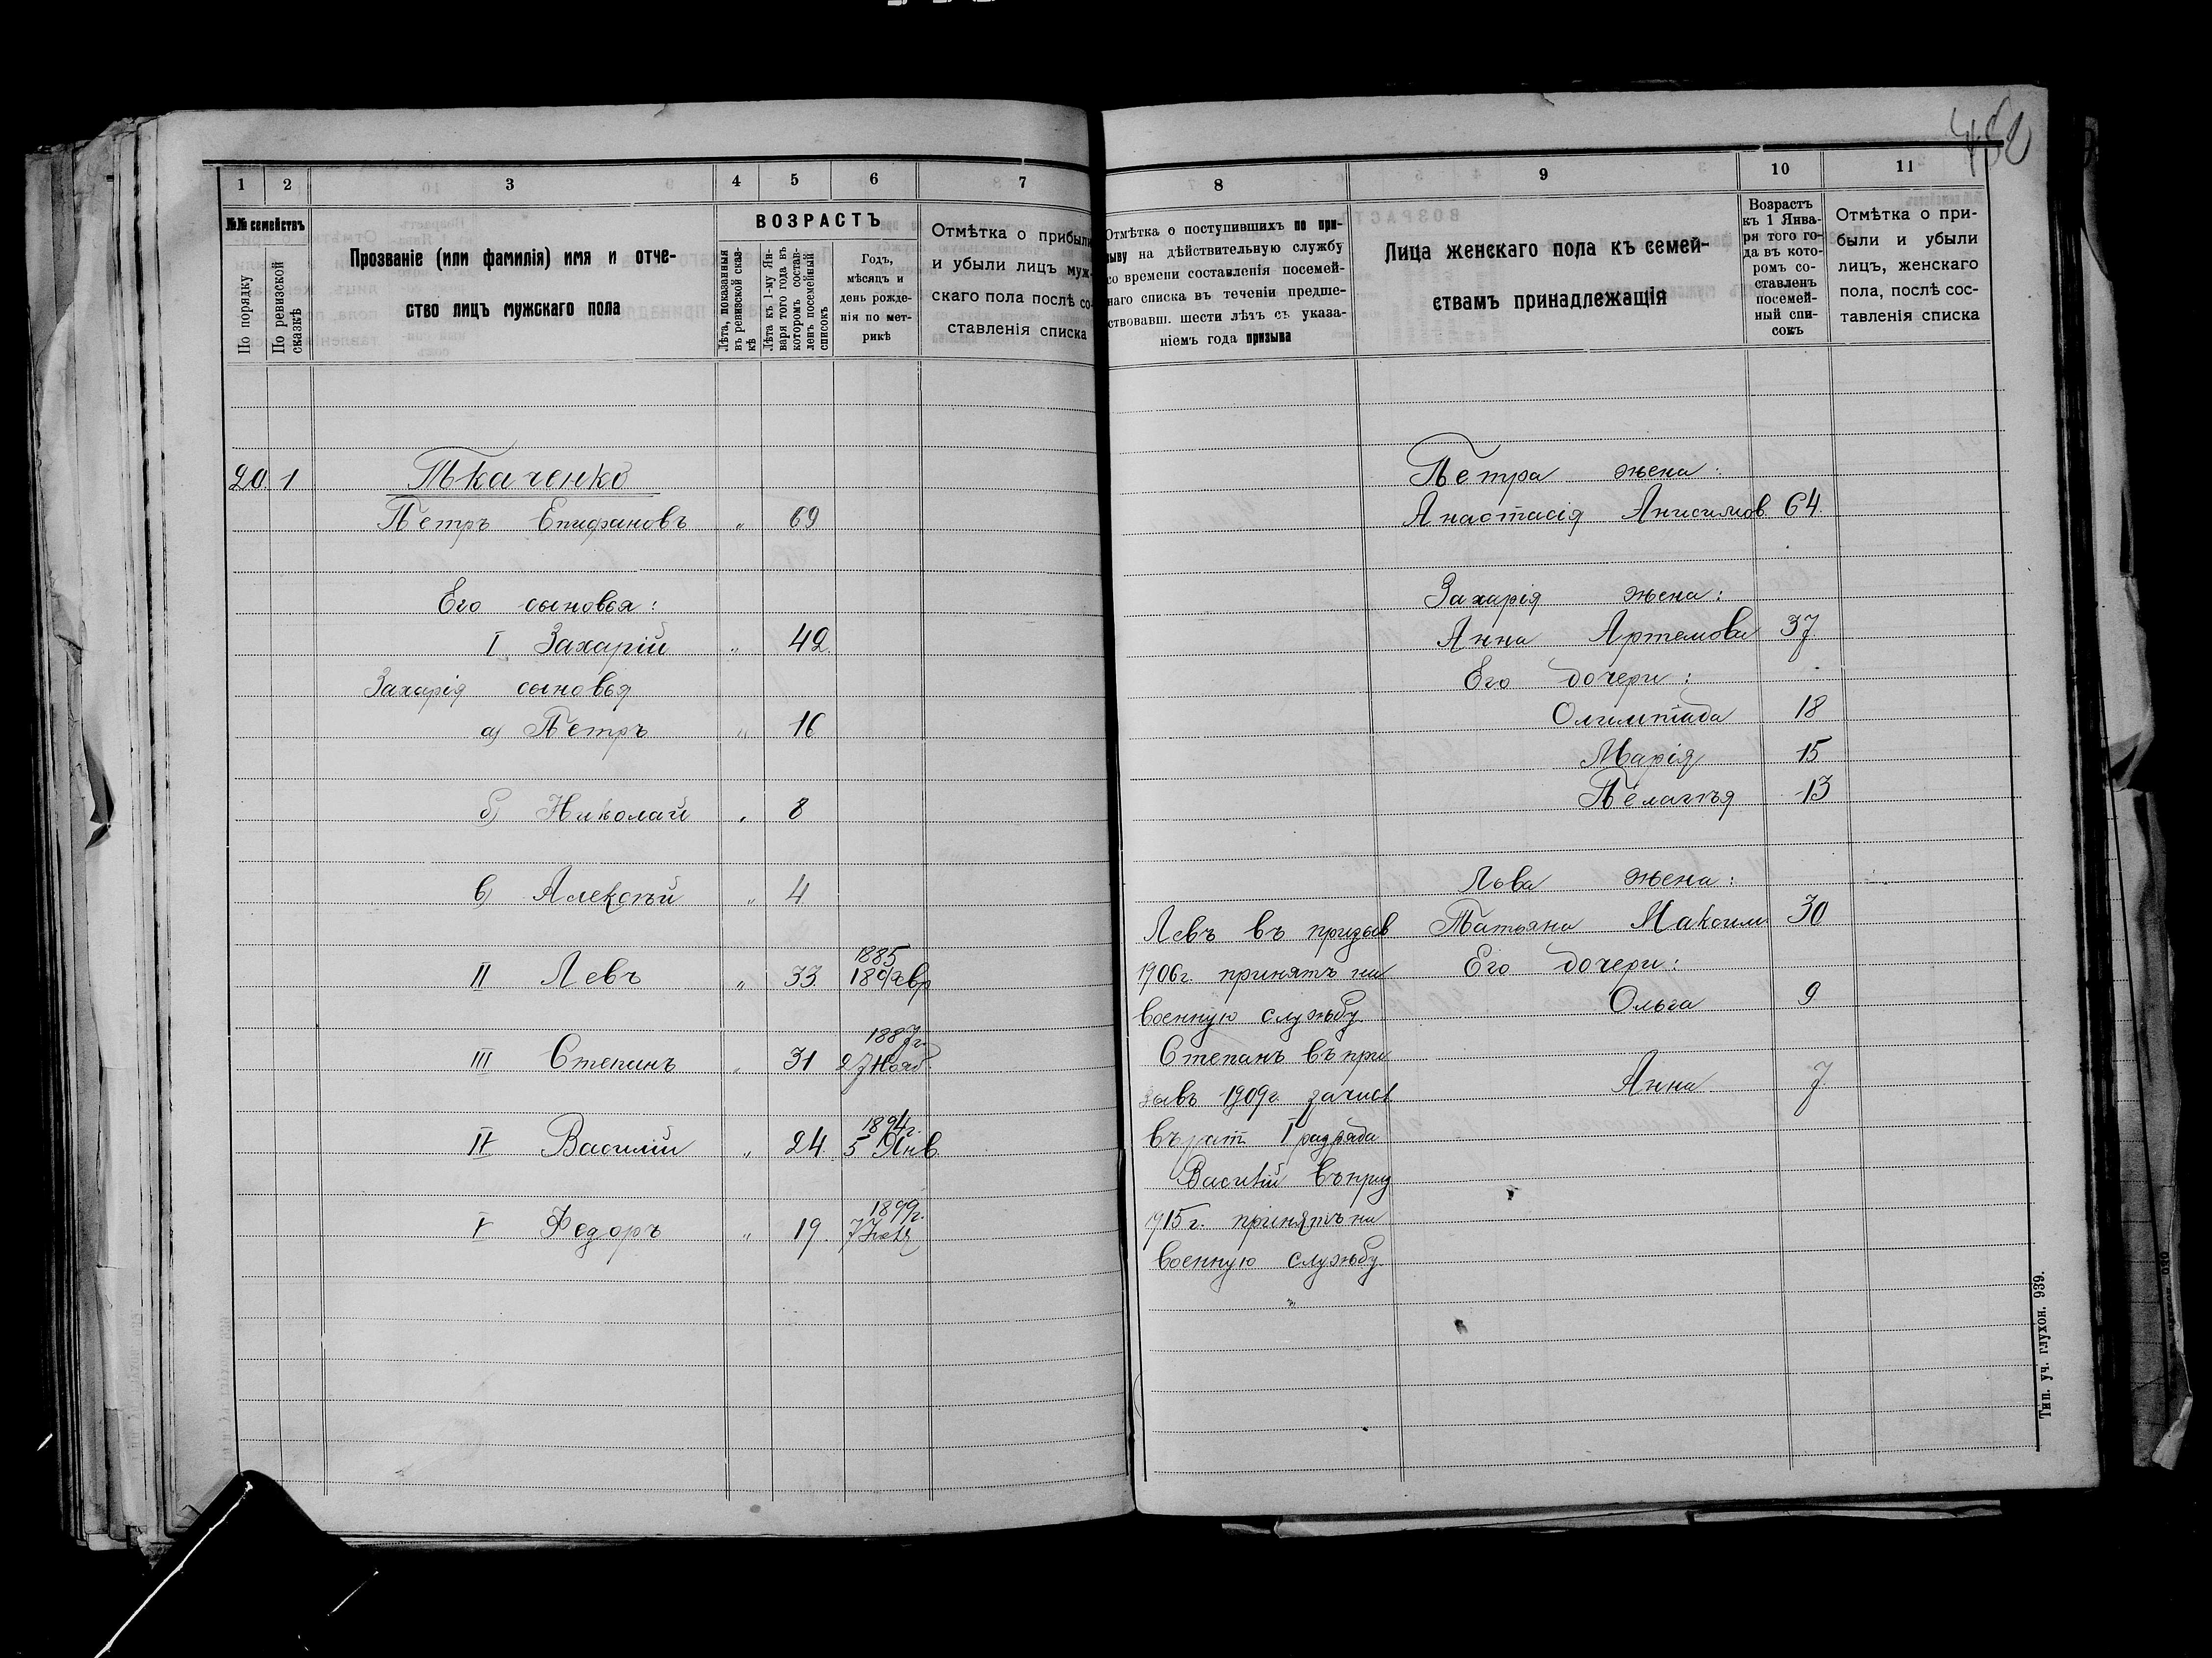 480
1 2 3 4 5 6 7
№№ семействъ
По порядку
По ревизской сказкѣ
Прозваніе (или фамилія) имя и отче-
ство лицъ мужскаго пола
ВОЗРАСТЪ
Лѣта, показанныя
въ ревизской сказ-
кѣ
Лѣта къ 1-му Ян-
варя того года въ
которомъ состав-
ленъ посемейный
списокъ
Годъ,
мѣсяцъ и
день рожде-
нія по мет-
рикѣ
Отмѣтка о прибыли
и убыли лицъ муж-
скаго пола послѣ со-
ставленія списка
20 1 Ткаченко
Петръ Епифановъ " 69
Его сыновья:
I Захарій " 42
Захарія сыновья
а) Петръ " 16
б) Николай " 8
в) Алексѣй " 4
1885
II Левъ " 33
1887г.
III Степанъ " 31 27 Нояб.
1894г.
IV Василій " 24 5 Янв.
1899г.
V Федоръ " 19
8 9 10 11
Отмѣтка о поступившихъ по при-
зыву на дѣйствительную службу
со времени составленія посемей-
наго списка въ теченіи предше-
ствовавш. шести лѣтъ съ указа-
ніемъ года призыва
Лица женскаго пола къ семей-
ствамъ принадлежащія
Возрастъ
къ 1 Янва-
ря того го-
да въ кото-
ромъ со-
ставленъ
посемей-
ный спи-
сокъ
Отмѣтка о при-
были и убыли
лицъ, женскаго
пола, послѣ сос-
тавленія списка
Петра жена:
Анастасія Анисимов. 64
Захарія жена:
Анна Артемова 37
Его дочери:
Олимпіада 18
Марія 15
Пелагѣя 13
Льва жена:
Левъ въ призыв Татьяна Максим. 30
1906г. принятъ на Его дочери:
военную службу Ольга 9
Степанъ въ при
зывъ 1909г. зачисл Анна 7
въ рат. I разряда
Василій въ приз
1915г. принятъ на
военную службу.
Тип. уч. глухон. 939.